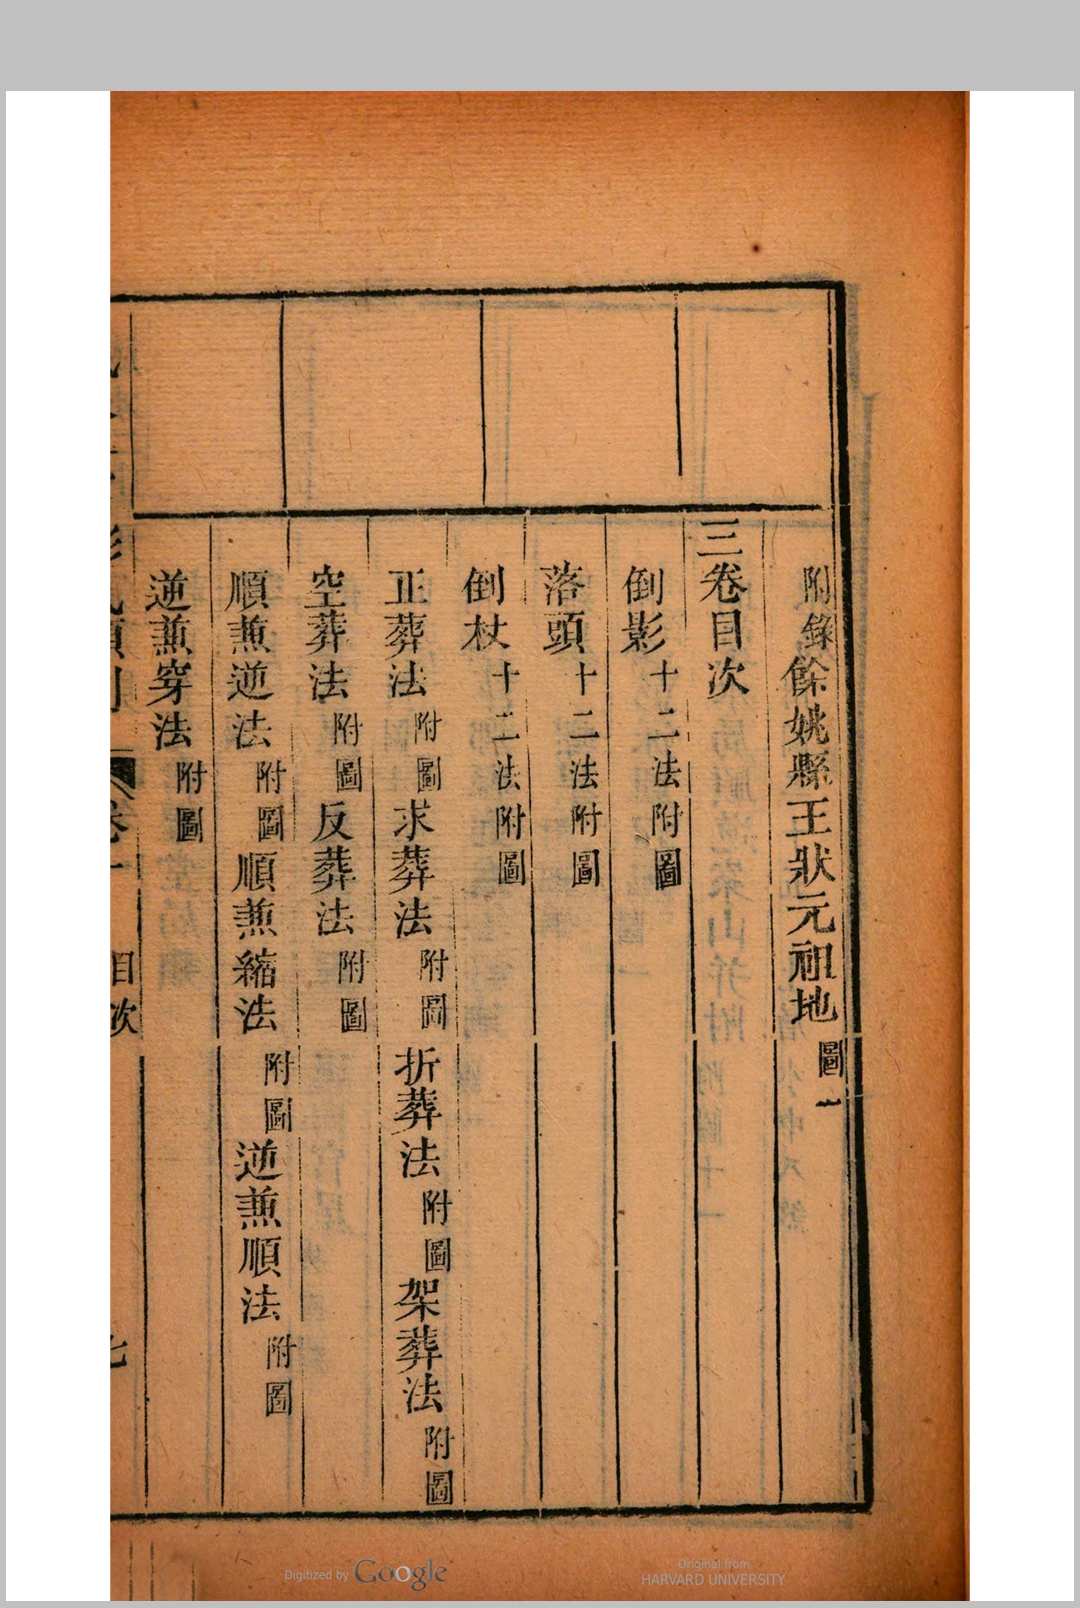 附錄餘姚縣王狀元祖地圖一
三卷目次
倒影十二法附圖
落頭十二法附圖
倒杖十二法附圖
正葬法附圖求葬法附圖折葬法附圖架葬法附圖
空葬法附圖反葬法附圖
順䔍逆法附圖順䔍縮法附圖逆䔍順法附圖
逆䔍穿法附圖
目次
七
Digitized by Google
Original from
HARVARD UNIVERSITY